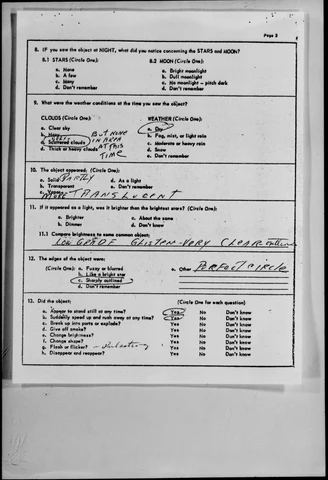 Page 2
8. IF you saw the object at NIGHT, what did you notice concerning the STARS and MOON?
8.1 STARS (Circle One): 8.2 MOON (Circle One):
a. None a. Bright moonlight
b. A few b. Dull moonlight
c. Many c. No moonlight - pitch dark
d. Don't remember d. Don't remember
9. What were the weather conditions at the time you saw the object?
CLOUDS (Circle One): WEATHER (Circle One):
a. Clear sky a. Dry
b. Hazy BUT NONE b. Fog, mist, or light rain
c. Scattered clouds IN AREA c. Moderate or heavy rain
d. Thick or heavy clouds AT THIS d. Snow
TIME e. Don't remember
10. The object appeared: (Circle One):
a. Solid PARTLY d. As a light
b. Transparent e. Don't remember
c. Vapor
MORE TRANSLUCENT
11. If it appeared as a light, was it brighter than the brightest stars? (Circle One):
a. Brighter c. About the same
b. Dimmer d. Don't know
11.1 Compare brightness to some common object:
LOW GRADE GLISTEN - VERY CLEAR outline
12. The edges of the object were:
(Circle One): a. Fuzzy or blurred e. Other PERFECT CIRCLE
b. Like a bright star
c. Sharply outlined
d. Don't remember
13. Did the object: (Circle One for each question)
a. Appear to stand still at any time? Yes No Don't know
b. Suddenly speed up and rush away at any time? Yes No Don't know
c. Break up into parts or explode? Yes No Don't know
d. Give off smoke? Yes No Don't know
e. Change brightness? Yes No Don't know
f. Change shape? Yes No Don't know
g. Flash or flicker? Yes No Don't know
h. Disappear and reappear? Yes No Don't know